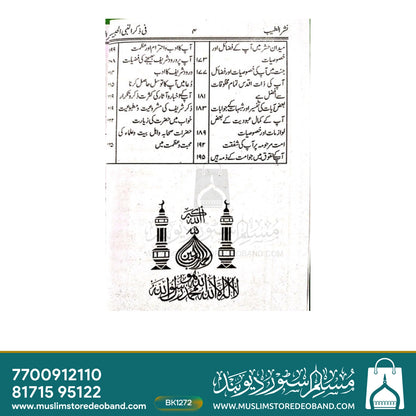 نشر الطیب
۴
فی ذکر النبی الحبیب
میدان حشر میں آپ کے فضائل اور
خصوصیات ۱۷۳
جنت میں آپ کی خصوصیات اور فضائل ۱۷۷
آپ کی ذات اقدس تمام مخلوقات
سے افضل ہے ۱۸۱
بعض آیات کی تفسیر اور شبہات کے جوابات ۱۸۳
آپ کے کمال عبودیت کے بعض
لوازمات اور خصوصیات ۱۸۹
امت مرحومہ پر آپ کی شفقت ۱۹۲
آپ کے حقوق میں جو امت کے ذمہ ہیں ۱۹۵
آپ کا ادب و احترام اور عظمت
آپ پر درود شریف بھیجنے کی فضیلت
درود شریف کا ادب
دعا میں آپ کا توسل حاصل کرنا
آپ کے اخبار و آثار کی کثرت ذکر و تکرار
ذکر شریف کی مشروعیت
خواب میں حضرت کی زیارت
حضرات صحابہ و اہل بیت و علماء کی
محبت و عظمت میں
الله اكبر
لا اله الا الله محمد رسول الله
مسلم سٹور دیوبند
7700912110
81715 95122
www.muslimstoredeoband.com
BK1272
مسلم سٹور دیوبند
WWW.MUSLIMSTOREDEOBAND.COM